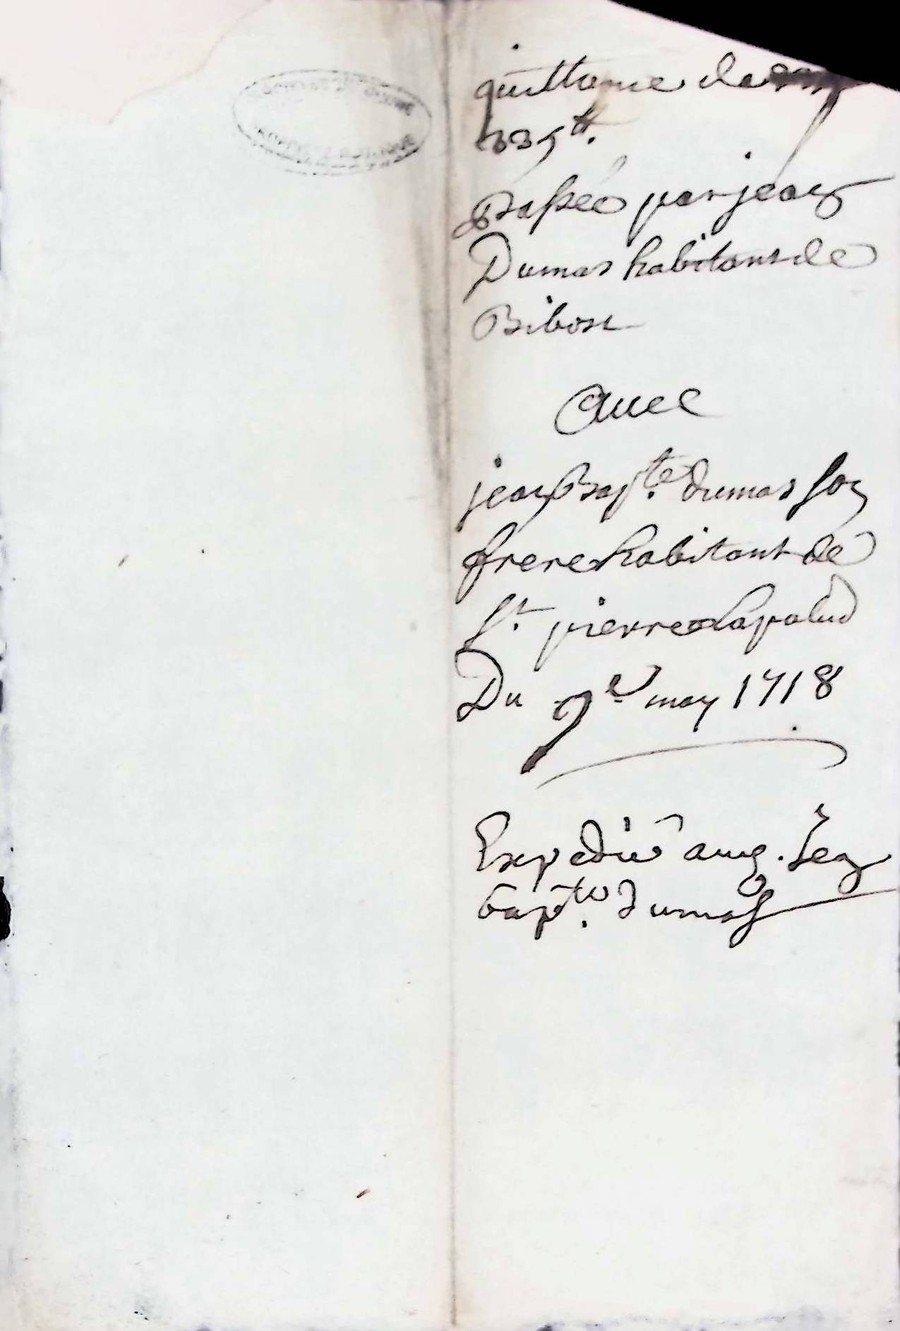 quittance de
335ᵗᵗ.
Passée par jean
Dumas habitant de
Bibost
Auec
jean Bapᵗᵉ. dumas son
frere habitant de
Sᵗ. pierre Lapalud
Du 9ᵉ. may 1718
Expedié au s. Jean
bapᵗᵉ. dumas